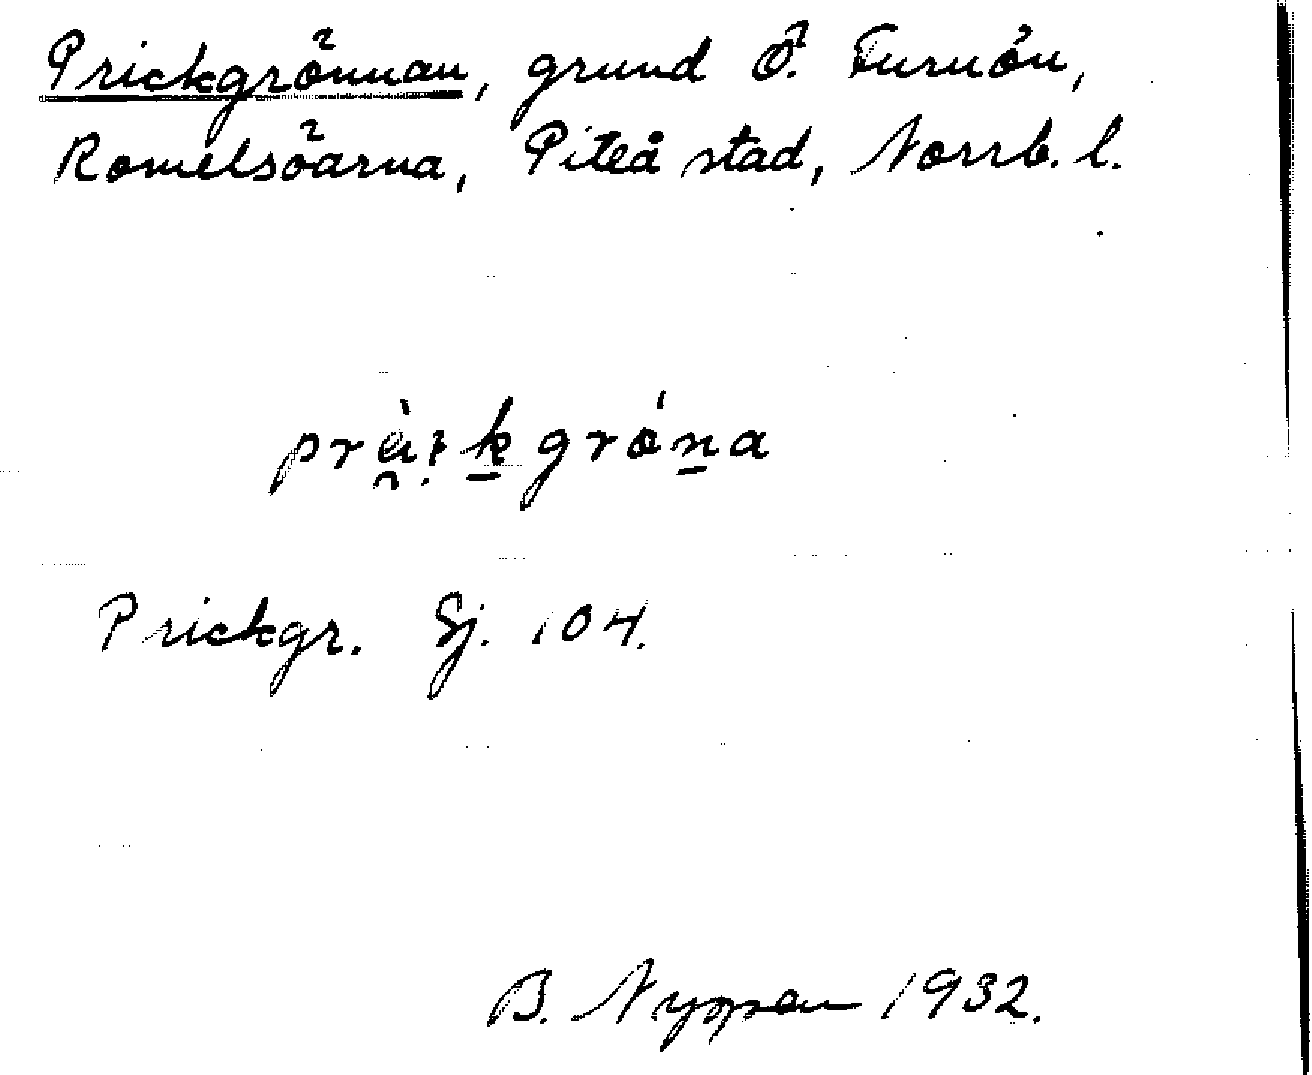 Prickgrönnan, grund Ö. Furuön,
Romelsöarna, Piteå stad, Norrb. l.
Prickgr. Sj. 104.
B. 1932.